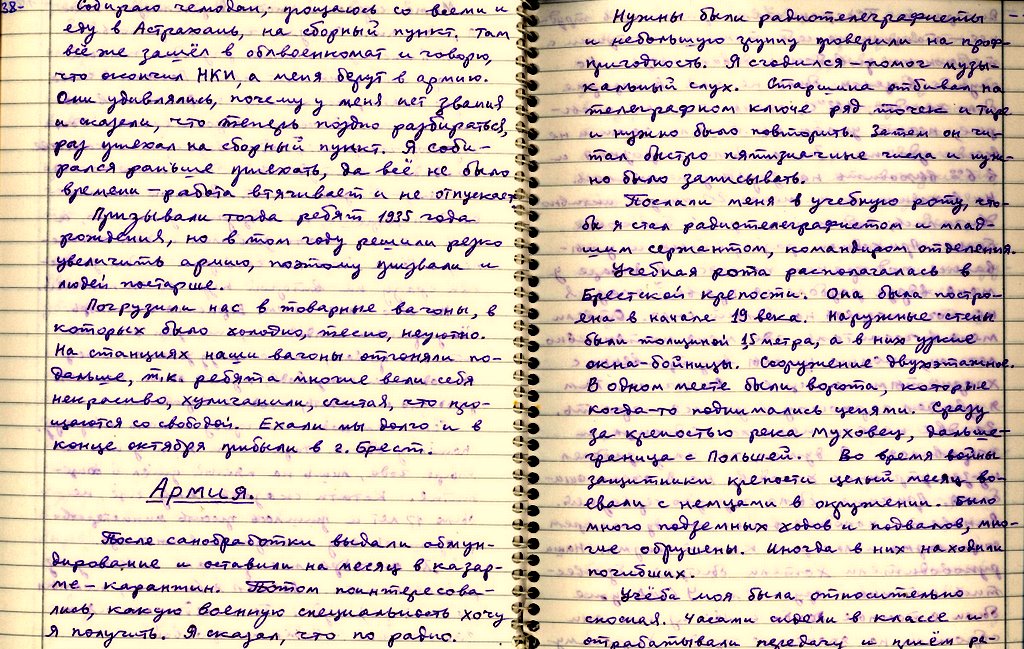 38-
Собираю чемодан, прощаюсь со всеми и
еду в Астрахань, на сборный пункт. Там
всё же зашёл в облвоенкомат и говорю,
что окончил НКИ, а меня берут в армию.
Они удивлялись, почему у меня нет звания
и сказали, что теперь поздно разбираться,
раз уехал на сборный пункт. Я соби-
рался раньше приехать, да всё не было
времени – работа втягивает и не отпускает.
Призывали тогда ребят 1935 года
рождения, но в том году решили резко
увеличить армию, поэтому призвали и
людей постарше.
Погрузили нас в товарные вагоны, в
которых было холодно, тесно, неуютно.
На станциях наши вагоны отгоняли по-
дальше, т.к. ребята многие вели себя
некрасиво, хулиганили, считая, что про-
щаются со свободой. Ехали мы долго и в
конце октября прибыли в г. Брест.
Армия.
После санобработки выдали обмун-
дирование и оставили на месяц в казар-
ме – карантин. Потом поинтересова-
лись, какую военную специальность хочу
я получить. Я сказал, что по радио.
Нужны были радиотелеграфисты
и небольшую группу проверили на проф-
пригодность. Я сгодился – помог музы-
кальный слух. Старшина отбивал на
телеграфном ключе ряд точек и тире
и нужно было повторить. Затем он чи-
тал быстро пятизначные числа и нуж-
но было записывать.
Послали меня в учебную роту, что-
бы я стал радиотелеграфистом и млад-
шим сержантом, командиром отделения.
Учебная рота располагалась в
Брестской крепости. Она была постро-
ена в начале 19 века. Наружные стены
были толщиной 1,5 метра, а в них узкие
окна-бойницы. Сооружение двухэтажное.
В одном месте были ворота, которые
когда-то поднимались цепями. Сразу
за крепостью река Муховец, дальше –
граница с Польшей. Во время войны
защитники крепости целый месяц во-
евали с немцами в окружении. Было
много подземных ходов и подвалов, мно-
гие обрушены. Иногда в них находили
погибших.
Учёба моя была относительно
сносная. Часами сидели в классе и
отрабатывали передачу и приём ра-